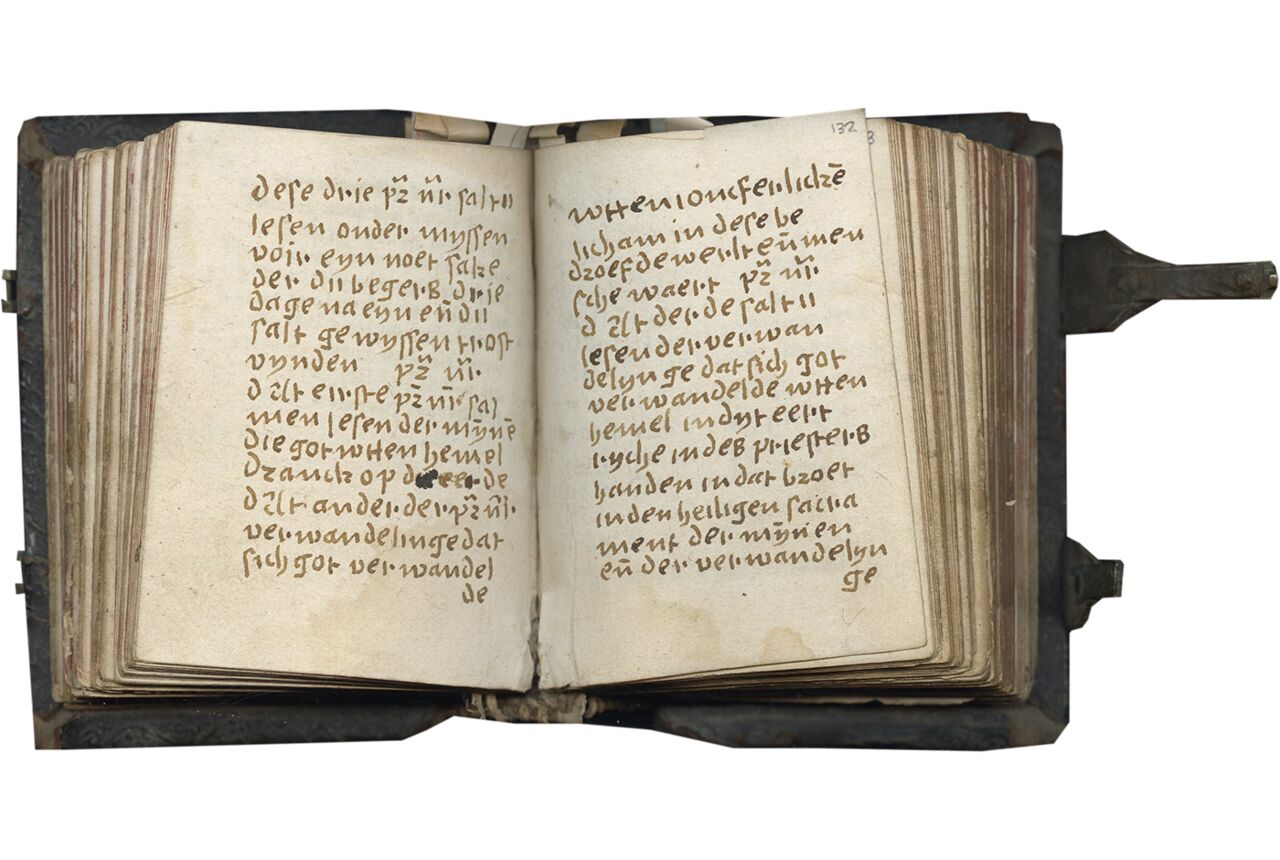 dese drie pʒ̄ nr̄ saltu
lesen onder myssen
voir eyn noet sake
der du begers drie
dage na eyn en̄ du
salt gewyssen trost
vynden pʒ̄ nr̄
dat erste pʒ̄ nr̄ sal
men lesen der mȳnē
die got wtten hemel
dranck op de eerde
dat ander der pʒ̄ nr̄
verwandelinge dat
sich got verwandel
de
132
wtten ioncferlickē
licham in dese be
droefde werlt en̄ men
sche waert pʒ̄ nr̄
dat derde saltu
lesen der verwan
delynge dat sich got
verwandelde wtten
hemel in dyt eert
ryche in des priesters
handen in dat broet
in den heiligen sacra
ment der mȳnen
en̄ der verwandelyn
ge